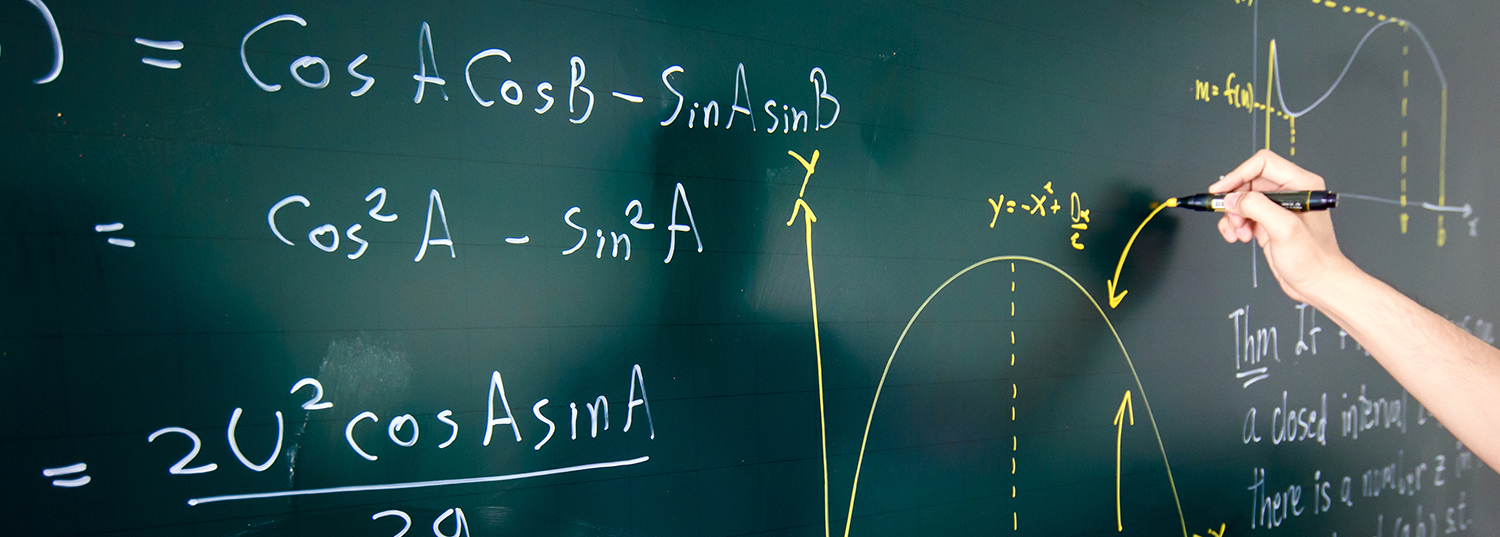 ) = Cos A Cos B - Sin A sin B
= Cos² A - Sin² A
= 2U² cos A sin A
2g
Y
y = -x² +
m = f(u)
x
Thm If
a closed interval
there is a number z
st.